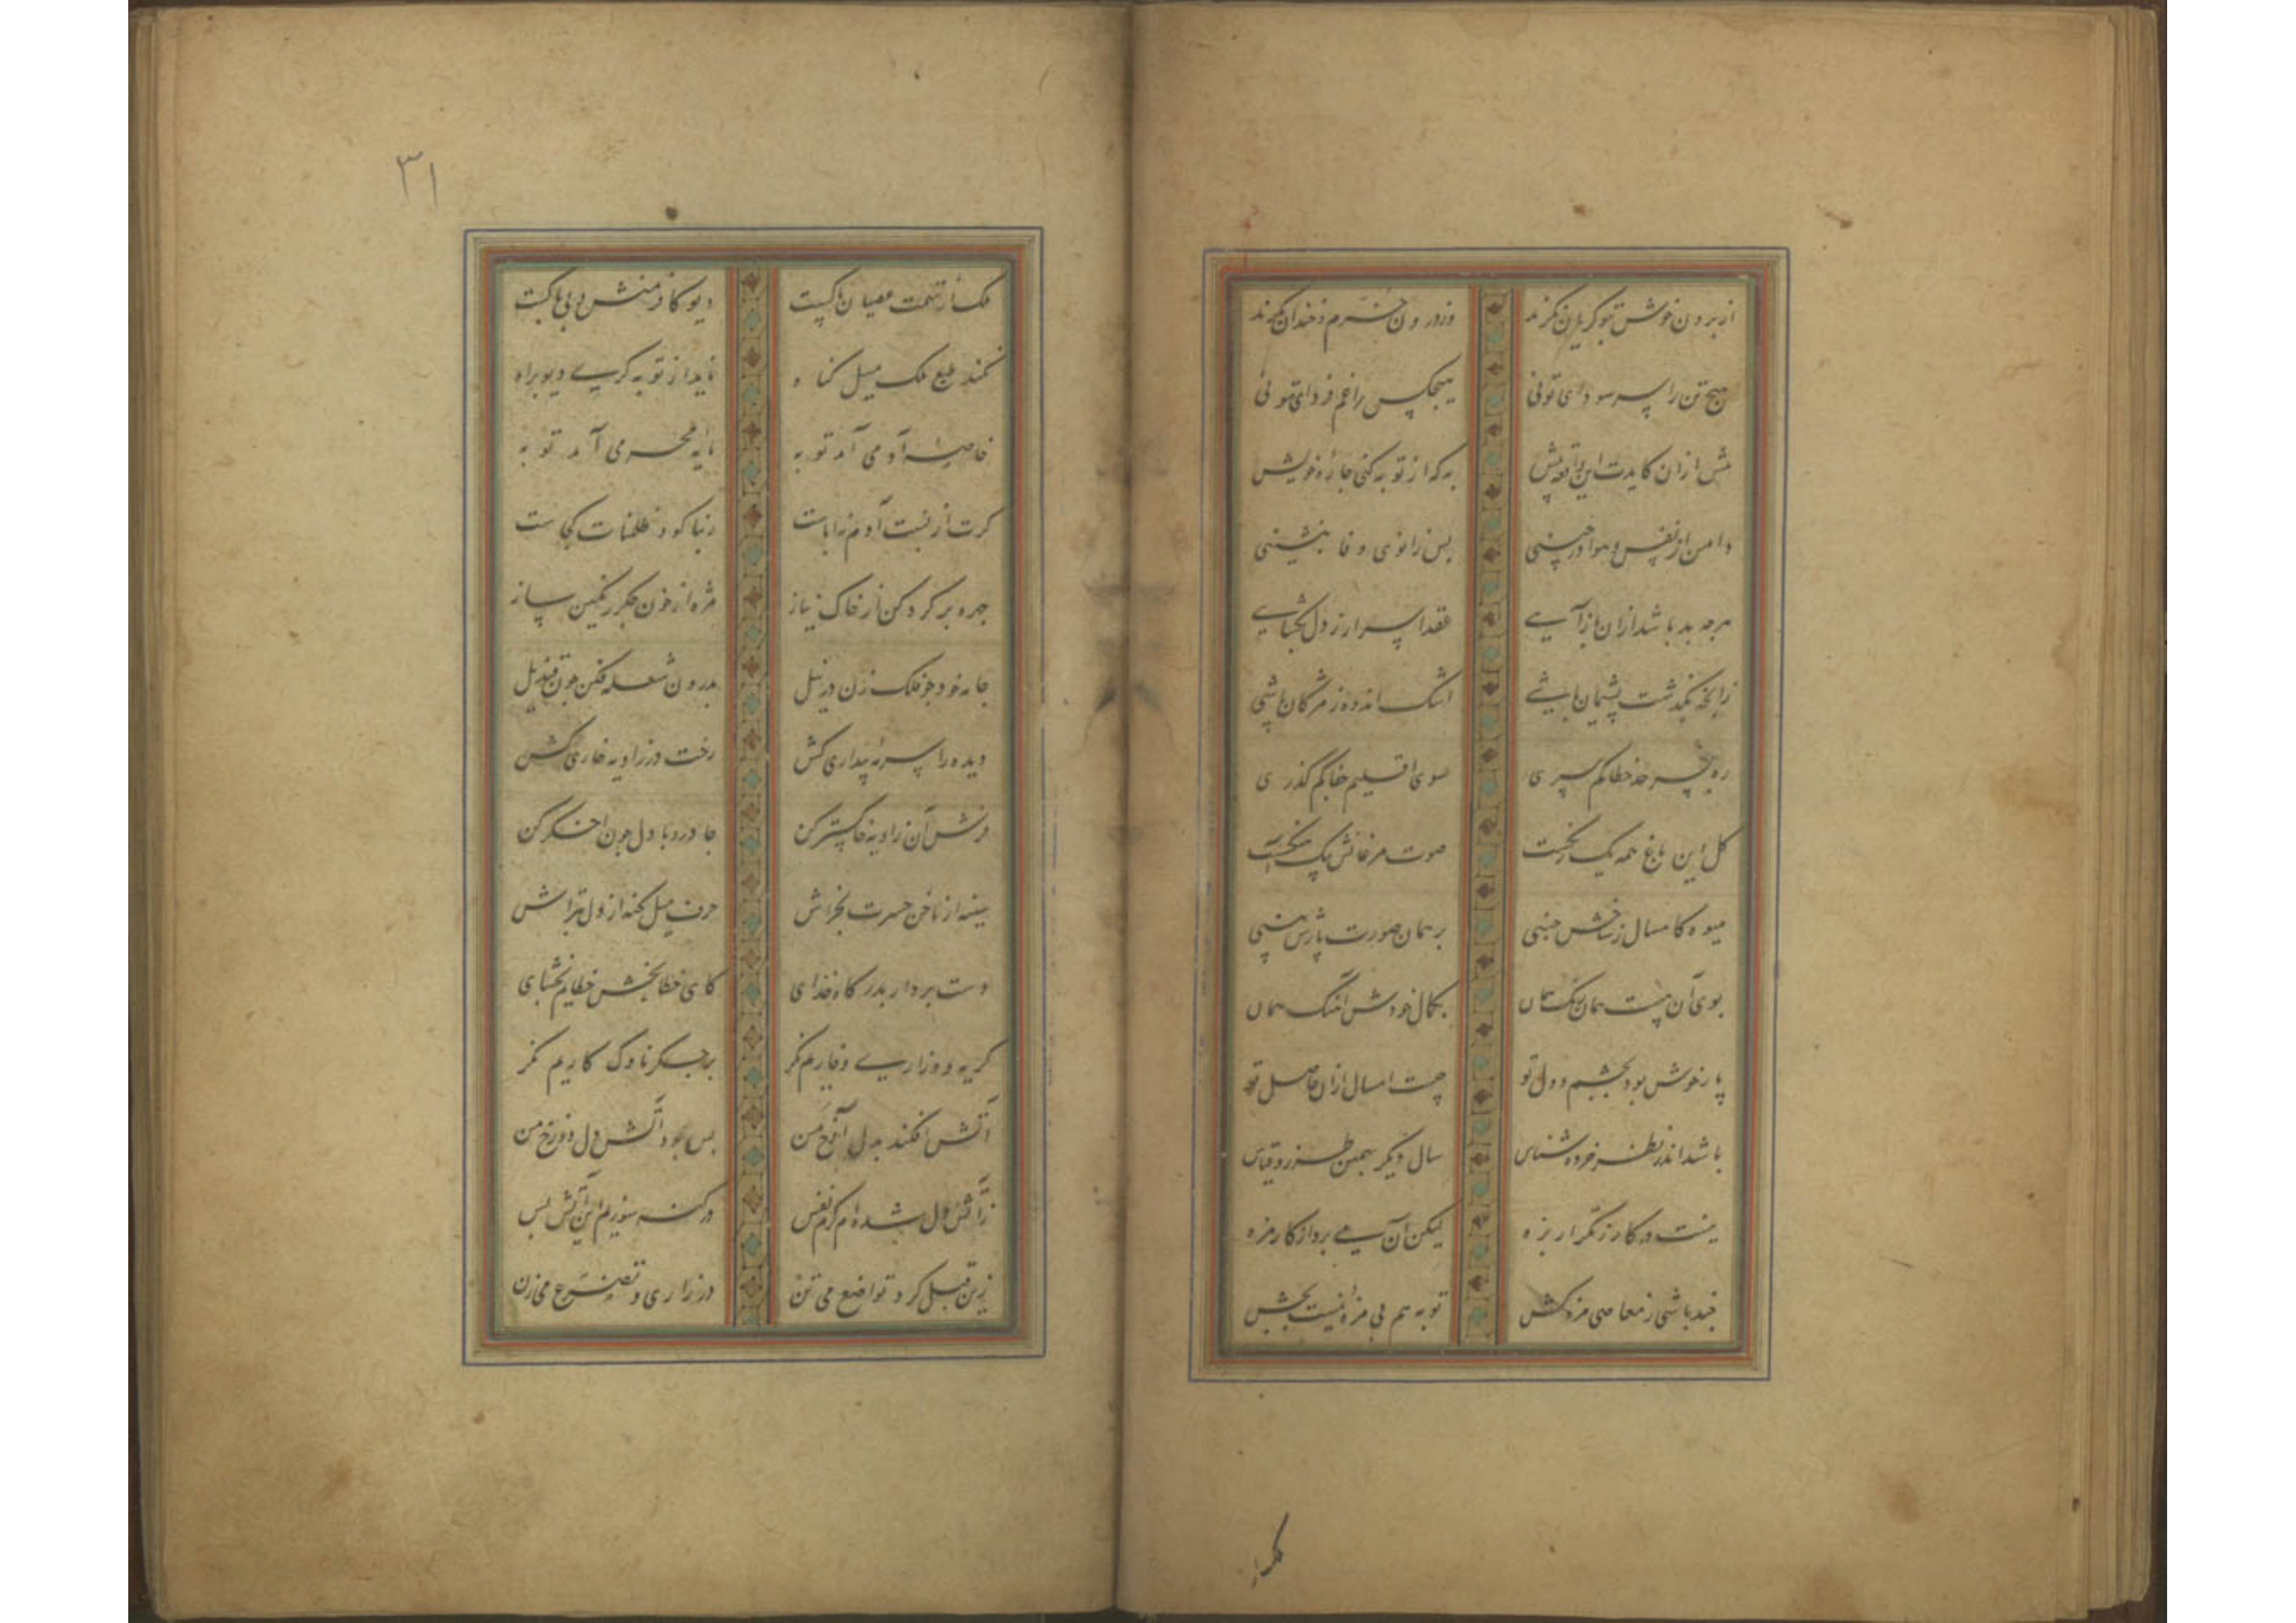 از برون خوش تو گریان نگرند وز درون خرم و خندان نگرند
هیچ تن را سر سودای تو نی هیچکس را غم فردای تو نی
پیش ازان کایدت این واقعه پیش به که از توبه کنی چارهٔ خویش
دامن از نفس و هوا درچینی پس زانوی وفا بنشینی
هرچه بد باشد ازان بازآیی عقد اسرار ز دل بگشایی
زانچه بگذشت پشیمان باشی اشک اندوه ز مژگان پاشی
سوی اقلیم جفا کم گذری
گل این باغ همه یک رنگست صوت مرغانش یک آهنگست
میوه کامسال ز شاخش چینی بر همان صورت پارش بینی
بوی آن چیست همان رنگ همان
پار خوش بود بچشم و دل تو چیست امسال ازان حاصل تو
باشد اندر نظر خرده شناس سال دیگر بهمین طرز و قیاس
نیست در کار ز تکرار بزه لیکن آن می برد از کار مزه
چند باشی ز معاصی مزه کش توبه هم بی مزه نیست بچش
ملک از
۳۱
ملک از تهمت عصیان پاکست دیو کافر منش بی باکست
نکند طبع ملک میل گناه ناید از توبه گری دیو براه
خاصهٔ آدمی آمد توبه مایهٔ محرمی آمد توبه
گرت از نسبت آدم نه اباست ربنا گو و ظلمنات کجاست
چهره پر گرد کن از خاک نیاز مژه از خون جگر رنگین ساز
جامه خود چو فلک زن در نیل بدرون شعله فکن چون قندیل
دیده را سرمهٔ بیداری کش رخت در زاویه خاری کش
فرش آن زاویه خاکستر کن جا درو با دل چون اخگر کن
سینه از ناخن حسرت بخراش حرف میل گنه از دل بتراش
دست بردار بدرگاه خدای کای خطابخش خطایم بخشای
گریه و زاری و خاریم نگر بر جگر ناوک کاریم نگر
آتش افکند بدل آوخ من بس بود آتش دل دوزخ من
ز آتش دل شده ام گرم نفس در گنه سوزیم این آتش بس
زین قبل گرد تواضع می تن در زاری و تضرع می زن